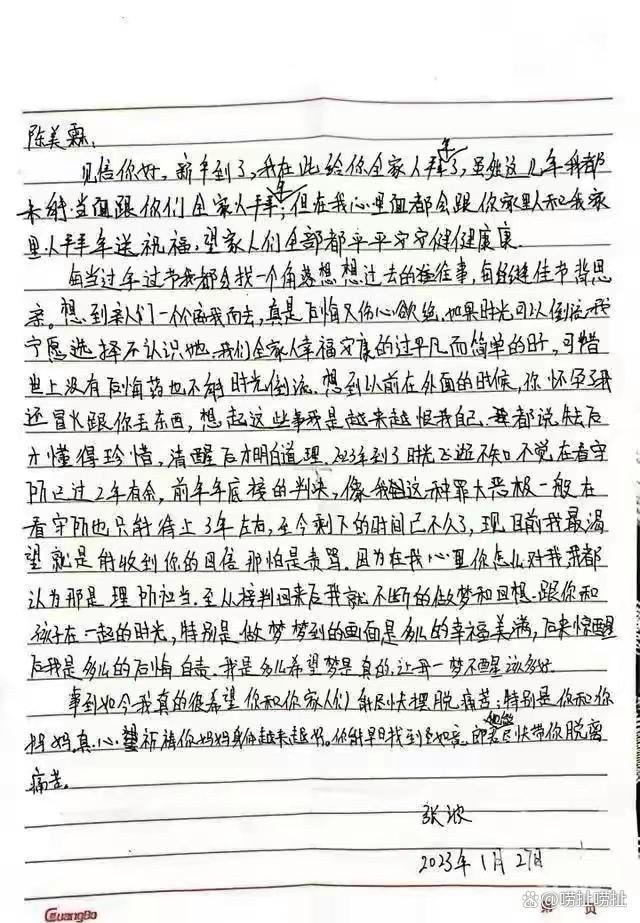 陈美霖,
见信你好,新年到了,我在此给你全家人拜年了,虽然这几年我都
未能当面跟你们全家人拜年;但在我心里面都会跟你家里人和我家
里人拜年送祝福,望家人们全部都平平安安健健康康.
每当过年过节我都会找一个角落想想过去的往事,每逢佳节背思
亲。想到亲人们一个个离我而去,真是后悔又伤心欲绝.如果时光可以倒流我
宁愿选择不认识她.我们全家人幸福安康的过平凡而简单的日子,可惜
世上没有后悔药也不能时光倒流.想到以前在外面的时候,你怀孕了我
还冒火跟你丢东西,想起这些事我是越来越恨我自己.都说失去后
才懂得珍惜,清醒后才明白道理.2023年到了时光飞逝不知不觉在看守
所已过2年有余,前年年底接的判决,像我这种罪大恶极一般在
看守所也只能待上3年左右,至今剩下的时间已不久了,现目前我最渴
望就是能收到你的回信那怕是责骂.因为在我心里你怎么对我我都
认为那是理所当.至从接判回来后我就不断的做梦和回想.跟你和
孩子在一起的时光,特别是做梦梦到的画面是多么的幸福美满,后来惊醒
后我是多么的后悔自责.我是多么希望梦是真的,让我一梦不醒该多好.
事到如今我真的很希望你和你家人们能尽快摆脱痛苦;特别是你和你
妈妈.真心望祈祷你妈妈身体越来越好。你能早日找到如意郎君尽快带你脱离
痛苦。
张波
2023年1月27日
GuangBo
第 页
@唠扯唠扯